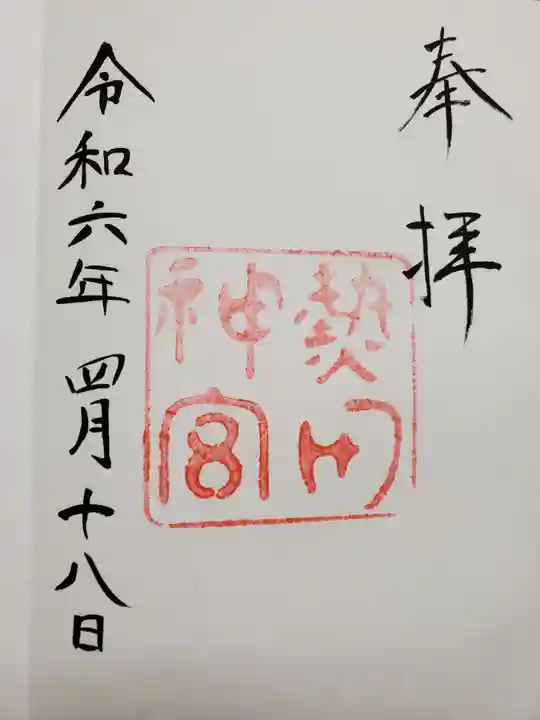 奉拝
熱田
神宮
令和六年 四月十八日